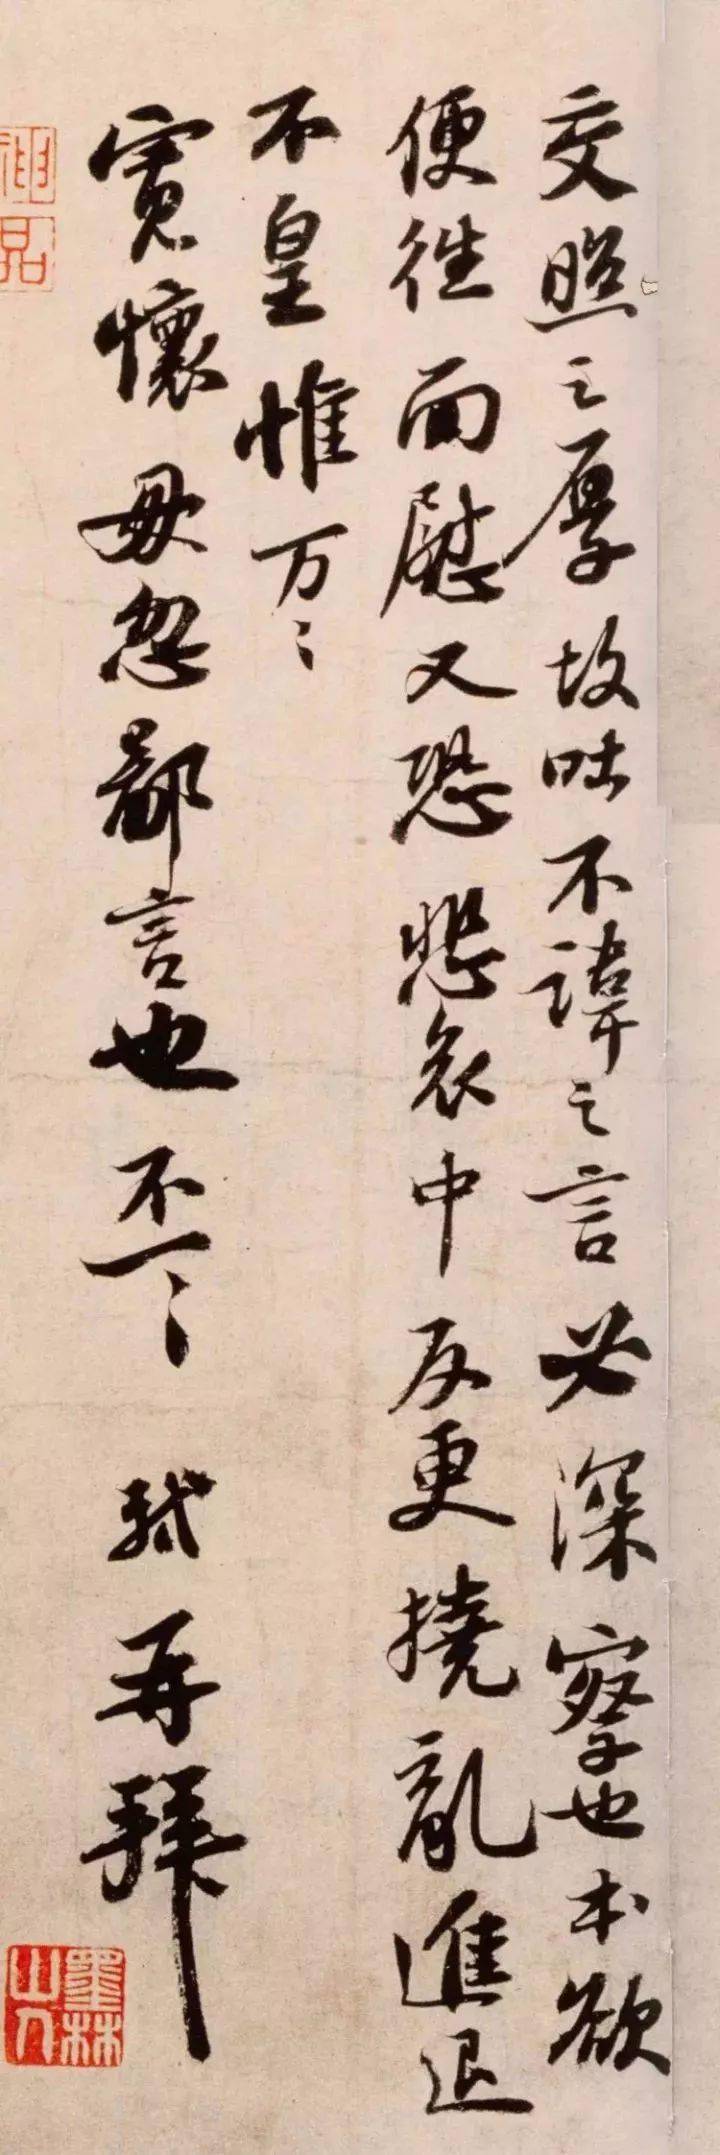 交照之厚故吐不諱之言必深察也本欲
便往面慰又恐悲哀中反更撓亂進退
不皇惟万〻
寬懷毋忽鄙言也不一〻 軾再拜
墨林山人